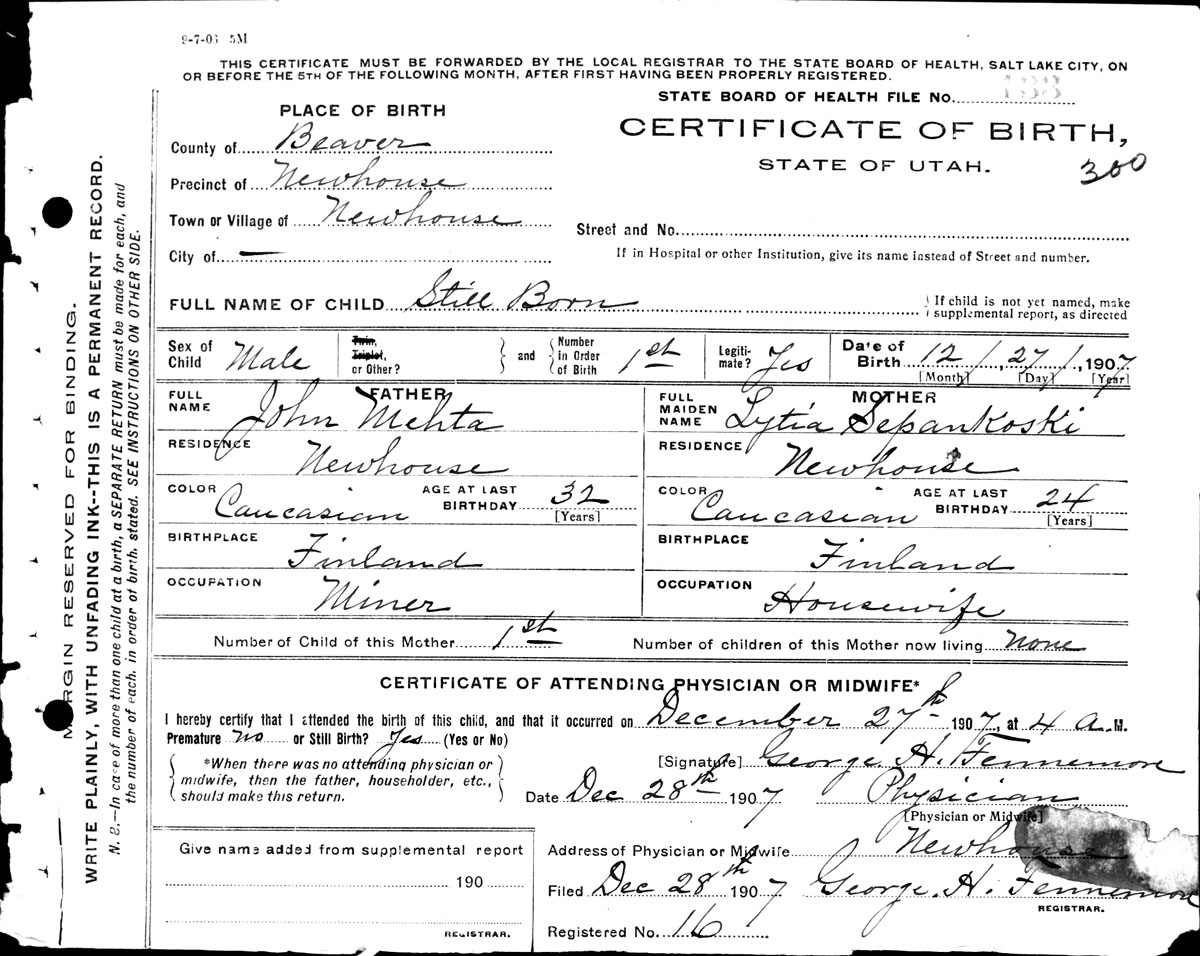 9-7-06 5M
THIS CERTIFICATE MUST BE FORWARDED BY THE LOCAL REGISTRAR TO THE STATE BOARD OF HEALTH, SALT LAKE CITY, ON
OR BEFORE THE 5TH OF THE FOLLOWING MONTH, AFTER FIRST HAVING BEEN PROPERLY REGISTERED.
STATE BOARD OF HEALTH FILE No. 133
PLACE OF BIRTH
CERTIFICATE OF BIRTH,
STATE OF UTAH.
300
County of Beaver
Precinct of Newhouse
Town or Village of Newhouse
Street and No.
City of —
If in Hospital or other Institution, give its name instead of Street and number.
FULL NAME OF CHILD Still Born
If child is not yet named, make
supplemental report, as directed
Sex of Child Male
Twin, Triplet, or Other? and Number in Order of Birth 1st
Legiti-mate? Yes
Date of Birth 12, 27, 1907
[Month] [Day] [Year]
FATHER
FULL NAME John Mehta
MOTHER
FULL MAIDEN NAME Lytia Sepankoski
RESIDENCE Newhouse
RESIDENCE Newhouse
COLOR Caucasian AGE AT LAST BIRTHDAY 32 [Years]
COLOR Caucasian AGE AT LAST BIRTHDAY 24 [Years]
BIRTHPLACE Finland
BIRTHPLACE Finland
OCCUPATION Miner
OCCUPATION Housewife
Number of Child of this Mother 1st Number of children of this Mother now living none
CERTIFICATE OF ATTENDING PHYSICIAN OR MIDWIFE*
I hereby certify that I attended the birth of this child, and that it occurred on December 27th 1907, at 4 A.M.
Premature no or Still Birth? Yes (Yes or No)
*When there was no attending physician or
midwife, then the father, householder, etc.,
should make this return.
[Signature] George H. Fennemore
Date Dec 28th 1907 Physician
[Physician or Midwife]
Give name added from supplemental report
190
REGISTRAR.
Address of Physician or Midwife Newhouse
Filed Dec 28th 1907 George. H. Fennemore
REGISTRAR.
Registered No. 16
MARGIN RESERVED FOR BINDING.
WRITE PLAINLY, WITH UNFADING INK--THIS IS A PERMANENT RECORD.
N. B.—In case of more than one child at a birth, a SEPARATE RETURN must be made for each, and
the number of each, in order of birth, stated. SEE INSTRUCTIONS ON OTHER SIDE.